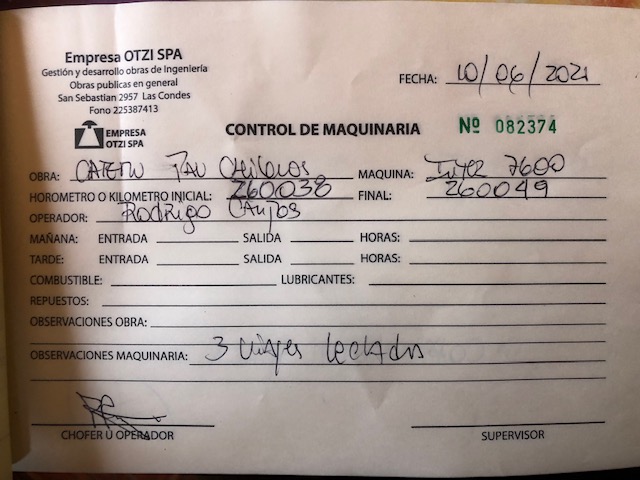 Empresa OTZI SPA
Gestión y desarrollo obras de Ingeniería
Obras publicas en general
San Sebastian 2957 Las Condes
Fono 225387413
FECHA: 10/06/2021
EMPRESA
OTZI SPA
CONTROL DE MAQUINARIA Nº 082374
OBRA: MAQUINA: 7600
HOROMETRO O KILOMETRO INICIAL: 260038 FINAL: 260049
OPERADOR: Rodrigo Campos
MAÑANA: ENTRADA SALIDA HORAS:
TARDE: ENTRADA SALIDA HORAS:
COMBUSTIBLE: LUBRICANTES:
REPUESTOS:
OBSERVACIONES OBRA:
OBSERVACIONES MAQUINARIA: 3 viajes
CHOFER U OPERADOR SUPERVISOR